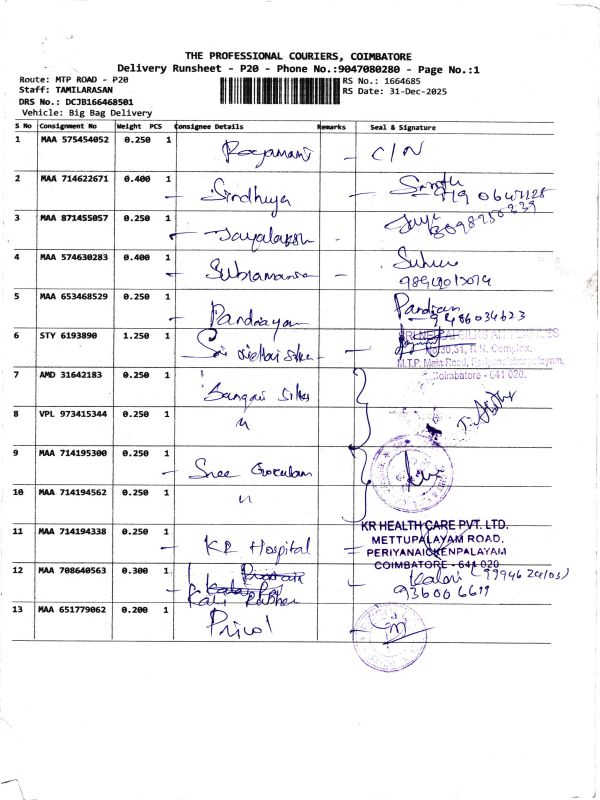 THE PROFESSIONAL COURIERS, COIMBATORE
Delivery Runsheet - P20 - Phone No.:9047080280 - Page No.:1
Route: MTP ROAD - P20
RS No.: 1664685
Staff: TAMILARASAN
RS Date: 31-Dec-2025
DRS No.: DCJB166468501
Vehicle: Big Bag Delivery
S No Consignment No Weight PCS Consignee Details Remarks Seal & Signature
1 MAA 575454052 0.250 1 C/N
2 MAA 714622671 0.400 1 Sindhuya
3 MAA 871455057 0.250 1 Jayalaksh Jaya
4 MAA 574630283 0.400 1
5 MAA 653468529 0.250 1 Pandiayan Pandian
9486034623
6 STY 6193890 1.250 1 Sri
M.T.P. Main Road,
Coimbatore - 641 020.
7 AMD 31642183 0.250 1 Silks
8 VPL 973415344 0.250 1 "
9 MAA 714195300 0.250 1 Sree Gokulam
10 MAA 714194562 0.250 1 "
11 MAA 714194338 0.250 1 KR Hospital
KR HEALTH CARE PVT. LTD.
METTUPALAYAM ROAD,
PERIYANAICKENPALAYAM
COIMBATORE - 641 020
12 MAA 708640563 0.300 1
13 MAA 651779062 0.200 1 Pricol